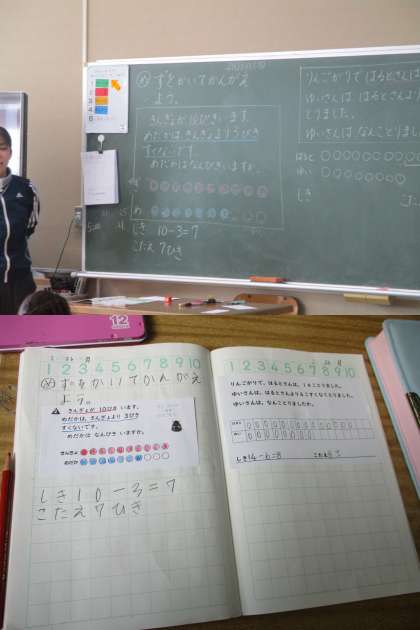 1
2
3
4
5
6
め ずをかいてかんがえ
よう。
きんぎょが10ぴきいます。
めだかは、きんぎょより3びき
すくないです。
めだかはなんびきいますか。
き
め
しき 10-3=7
こたえ 7ひき
りんごがりで、はるとさんは
ゆいさんは、はるとさんより
とりました。
ゆいさんは、なんことりました
はると
ゆい
しき
12
1 2 3 4 5 6 7 8 9 10
め ずをかいてかんがえ
よう。
きんぎょが 10ぴき います。
めだかは、きんぎょより 3びき
すくないです。
めだかは なんびき いますか。
きんぎょ
めだか
しき10-3=7
こたえ7ひき
1 2 3 4 5 6 7 8 9 10
りんごがりで、はるとさんは、14ことりました。
ゆいさんは、はるとさんより6こすくなくとりました。
ゆいさんは、なんことりましたか。
はると
ゆい
しき14-6=8
こたえ8こ